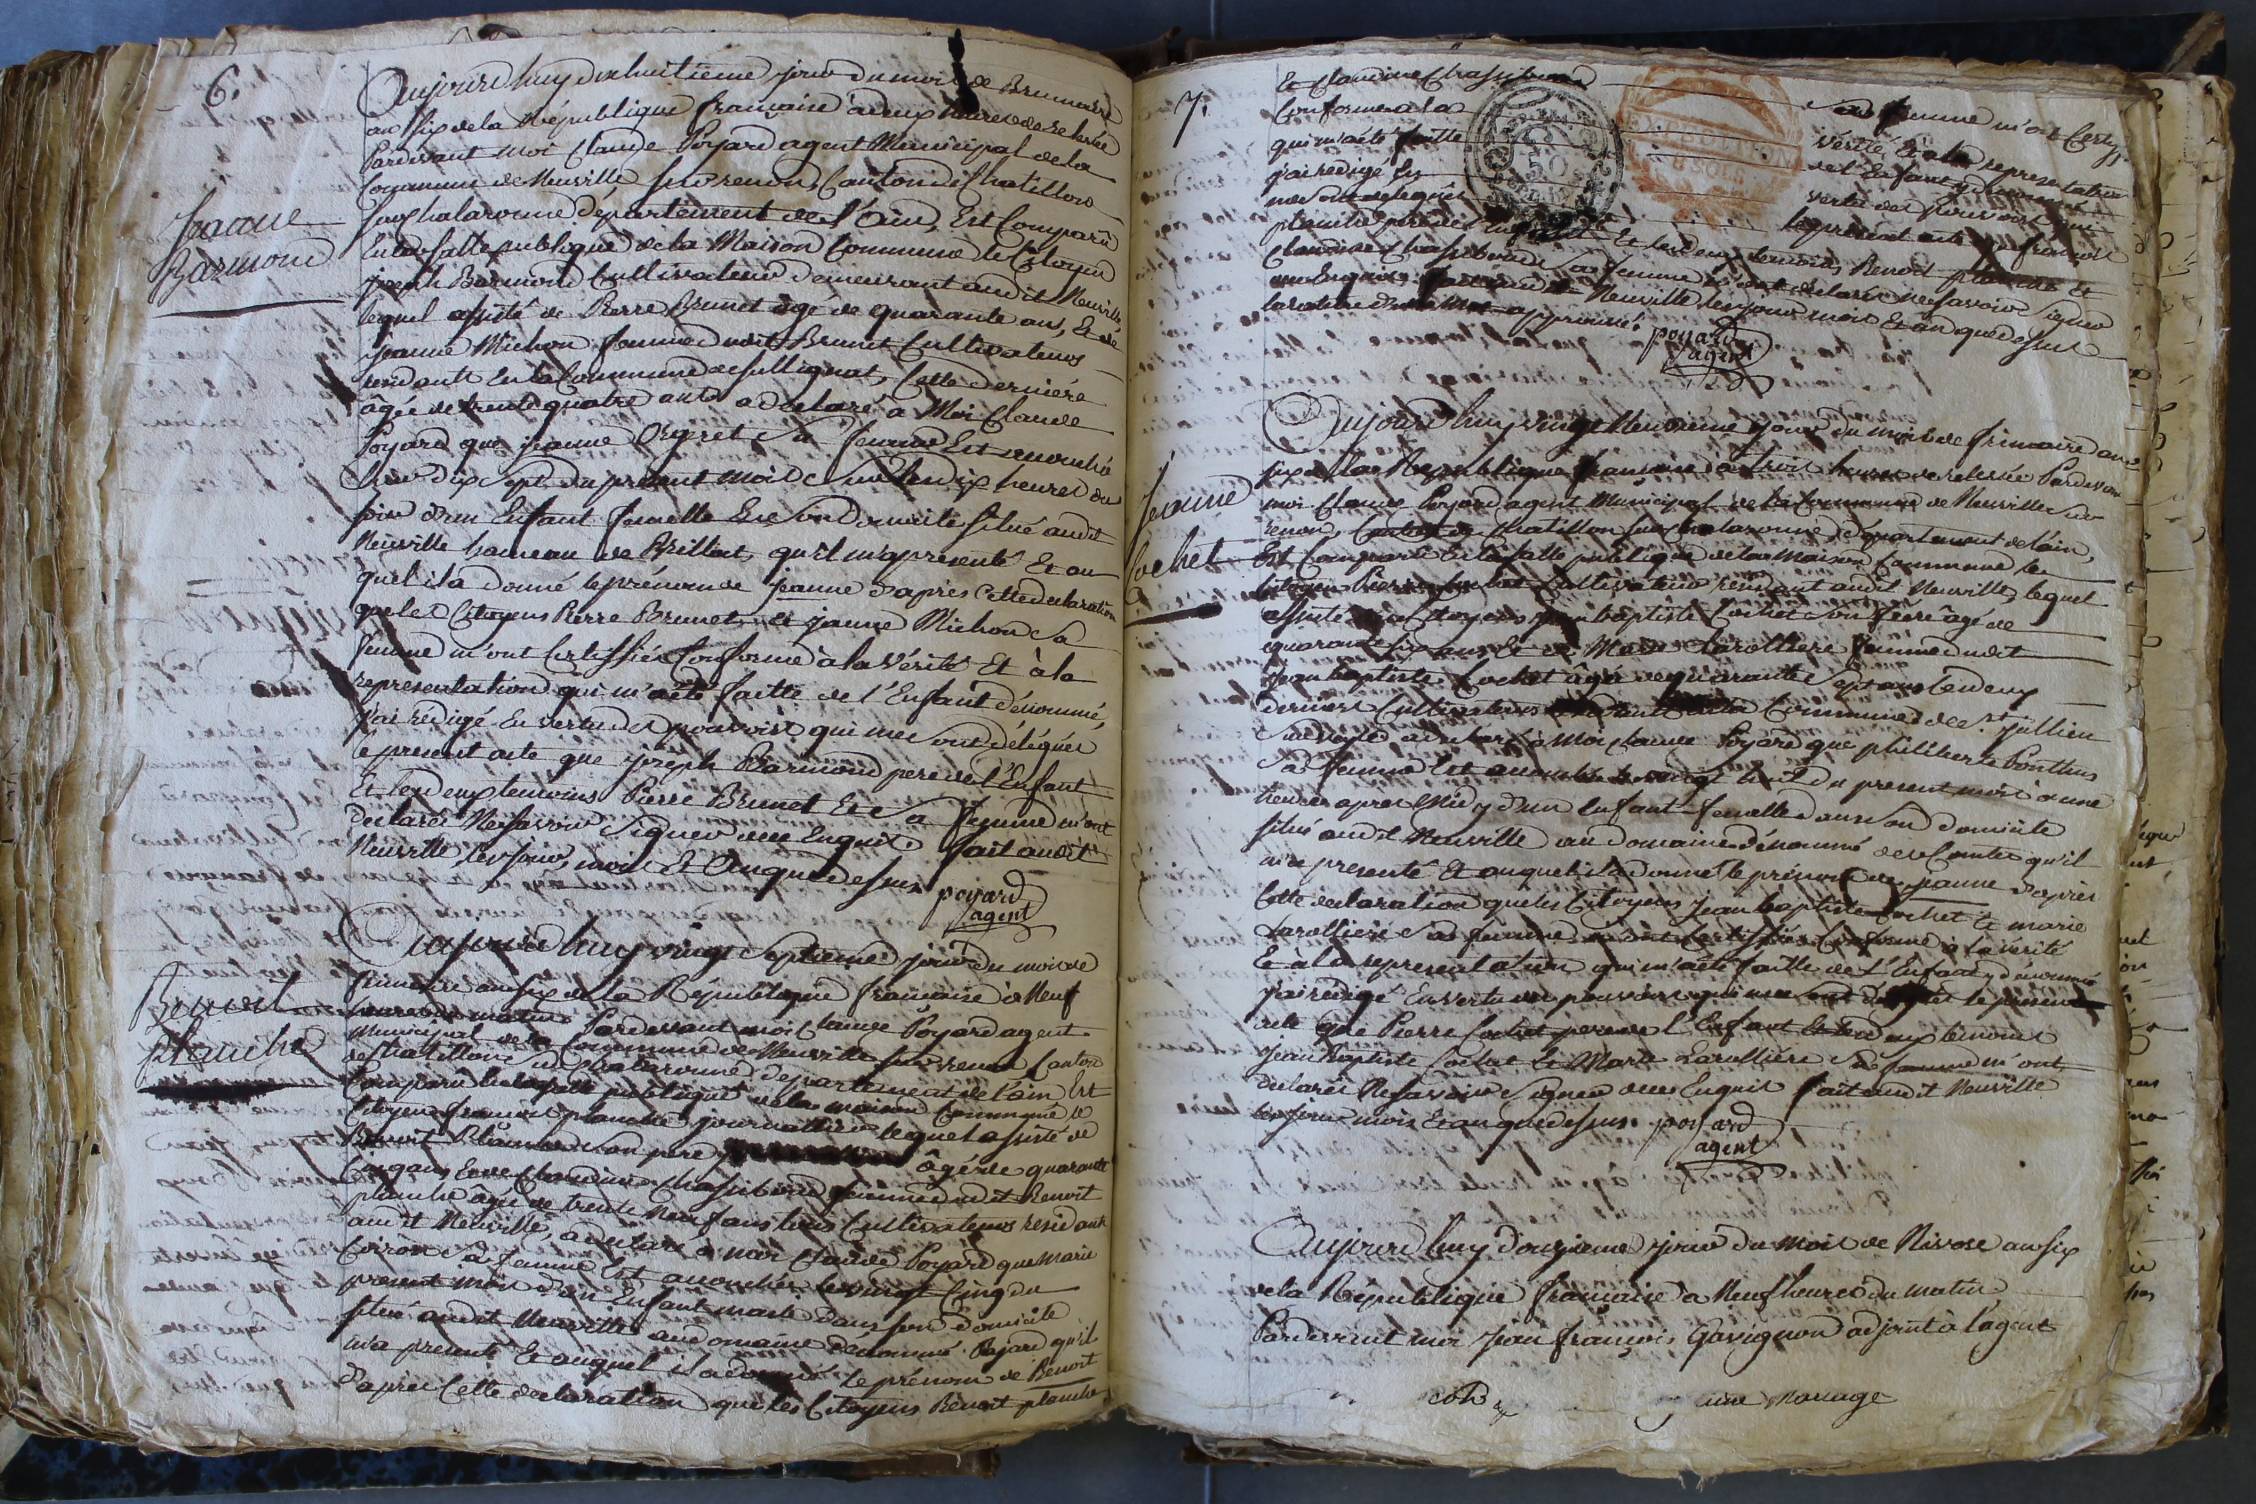 6.
Jeanne
Barmond
Aujourd'huy dix huitieme jour du mois de Brumaire
an six de la République française à deux heures de relevée
Pardevant moi Claude Poyard agent Municipal de la
Commune de Neuville sur renon, Canton de Chatillon
sur Chalaronne département de l'ain, Est Comparu
En la salle publique de la Maison Commune le Citoyen
joseph Barmond Cultivateur demeurant audit Neuville
lequel assisté de Pierre Brunet âgé de quarante ans, Et de
jeanne Michon femme dudit Brunet Cultivateurs
residants En la Commune de sullignat, Cette derniére
âgée de trente quatre ans a déclaré à Moi Claude
Poyard que jeanne Orgeret sa femme Est accouchée
hier dix sept du présent mois sur les dix heures du
soir d'un Enfant femelle En son domicile situé audit
Neuville hameau de Brillat, qu'il m'a présenté Et au
quel il a donné le prénom de jeanne d'aprés Cette declaration
que les Citoyens Pierre Brunet, et jeanne Michon sa
femme m'ont Certiffiés Conforme à la vérité Et à la
representation qui m'a été faitte de l'Enfant dénommé,
j'ai rédigé En vertu des pouvoirs qui me sont délégués
le present acte que joseph Barmond pere de l'Enfant
Et les deux temoins Pierre Brunet Et sa femme m'ont
déclarés Ne savoir signer de ce Enquis. fait audit
Neuville les jour, mois Et An que dessus poyard
agent
Benoit
planche
Aujourd'huy vingt septieme jour du mois de
frimaire an six de la République française à Neuf
heures du matin Pardevant moi Claude Poyard agent
municipal de la Commune de Neuville sur renon Canton
de Chatillon sur Chalaronne département de l'ain Est
Comparu En la salle publique de la maison Commune le
Citoyen françois planche journallier lequel assisté de
Benoit Planche son pere âgé de quarante
Cinq ans Et de Claudine Chassiboud femme dudit Benoit
planche agée de trente Neuf ans tous Cultivateurs residants
audit Neuville, a déclaré à moi Claude Poyard que Marie
Coiron sa femme Est accouchée le vingt Cinq du
present mois d'un Enfant masle dans son domicile
situé audit Neuville au domaine dénommé Pajard qu'il
m'a présenté Et auquel il a donné le prénom de Benoit
d'aprés Cette declaration que les Citoyens Benoit planche
7.
Et Claudine Chassiboud sa femme m'ont Certif
Conforme à la vérité Et à la representation
qui m'a été faitte de l'Enfant dénommé
j'ai redigé En vertu des pouvoirs qui
me sont delegués le présent acte que françois
planche pere de l'Enfant Et les deux temoins Benoit planche et
Claudine Chassiboud sa femme m'ont déclarés ne savoir signer
de ce Enquis. fait audit Neuville les jour mois Et an que dessus
la rature d'un mot approuvé. poyard
agent
Jeanne
Cochet
Aujourd'huy vingt Neuvieme jour du mois de frimaire an
six de la Republique française à trois heures de relevée Pardevant
moi Claude Poyard agent Municipal de la Commune de Neuville sur
renon, Canton de Chatillon sur Chalaronne département de l'ain,
Est Comparu En la salle publique de la maison Commune le
Citoyen Pierre Cochet Cultivateur residant audit Neuville, lequel
assisté des Citoyens Jean baptiste Cochet son frere âgé de
quarante six ans, Et de Marie Larolliere femme dudit
Jean baptiste Cochet âgée de quarante sept ans les deux
derniers Cultivateurs residants En la Commune de St. jullien
sur Veyle a déclaré à Moi Claude Poyard que philliberte Ponthus
sa femme Est accouchée le vingt huit du present mois à une
heure apres Midy d'un Enfant femelle dans son domicile
situé audit Neuville au domaine dénommé de la Comtes qu'il
m'a presenté Et auquel il a donné le prénom de jeanne d'aprés
Cette declaration que les Citoyens Jean baptiste Cochet Et marie
Larolliere sa femme m'ont Certiffiés Conforme à la verité
Et à la representation qui m'a été faitte de l'Enfant dénommé
j'ai redigé En vertu des pouvoirs qui me sont délégués le présent
acte que Pierre Cochet pere de l'Enfant Et les deux temoins
Jean Baptiste Cochet Et Marie Larolliere sa femme m'ont
déclarés Ne savoir signer de ce Enquis fait audit Neuville
les jour mois Et an que dessus. poyard
agent
Aujourd'huy douzieme jour du mois de Nivose an six
de la République française à Neuf heures du matin
Pardevant moi Jean françois Gavignon adjoint à l'agent
une Mariage